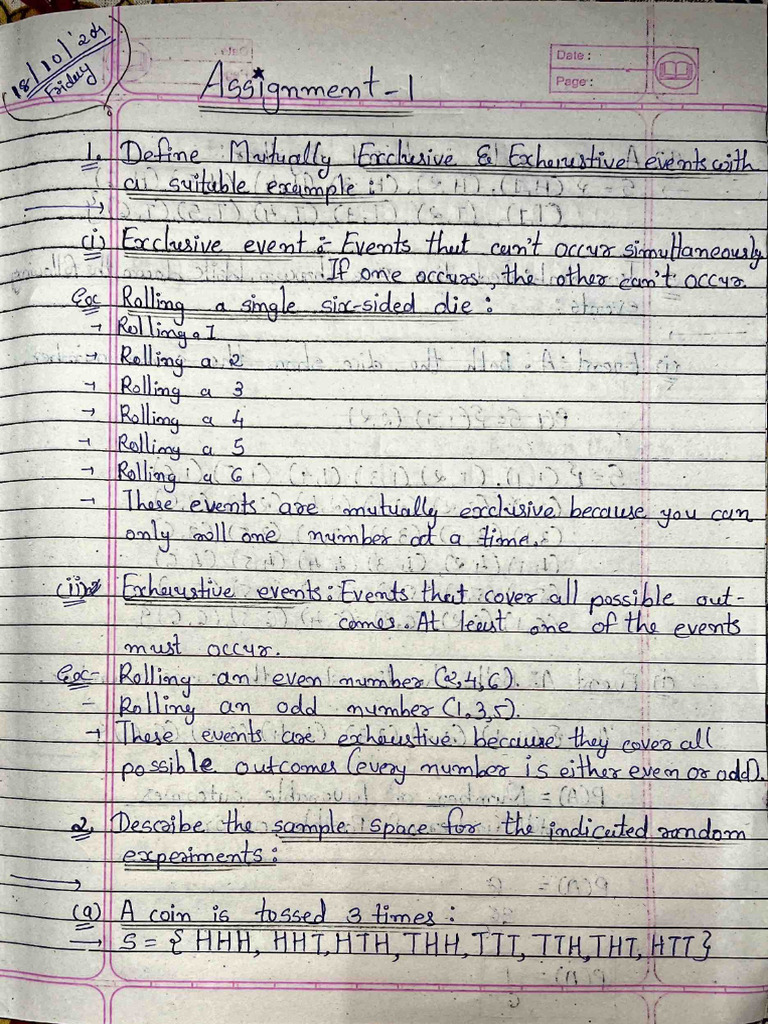 18/10/'24
Friday
Date :
Page :
Assignment-1
1. Define Mutually Exclusive & Exhaustive events with
a suitable example :
(i) Exclusive event :- Events that can't occur simultaneously
If one occurs, the other can't occur.
Ex Rolling a single six-sided die :
→ Rolling a 1
→ Rolling a 2
→ Rolling a 3
→ Rolling a 4
→ Rolling a 5
→ Rolling a 6
→ These events are mutually exclusive because you can
only roll one number at a time.
(ii) Exhaustive events : Events that cover all possible out-
comes. At least one of the events
must occur.
Ex- Rolling an even number (2,4,6).
- Rolling an odd number (1,3,5).
→ These events are exhaustive because they cover all
possible outcomes (every number is either even or odd).
2. Describe the sample space for the indicated random
experiments :
(a) A coin is tossed 3 times :
→ S = { HHH, HHT, HTH, THH, TTT, TTH, THT, HTT }